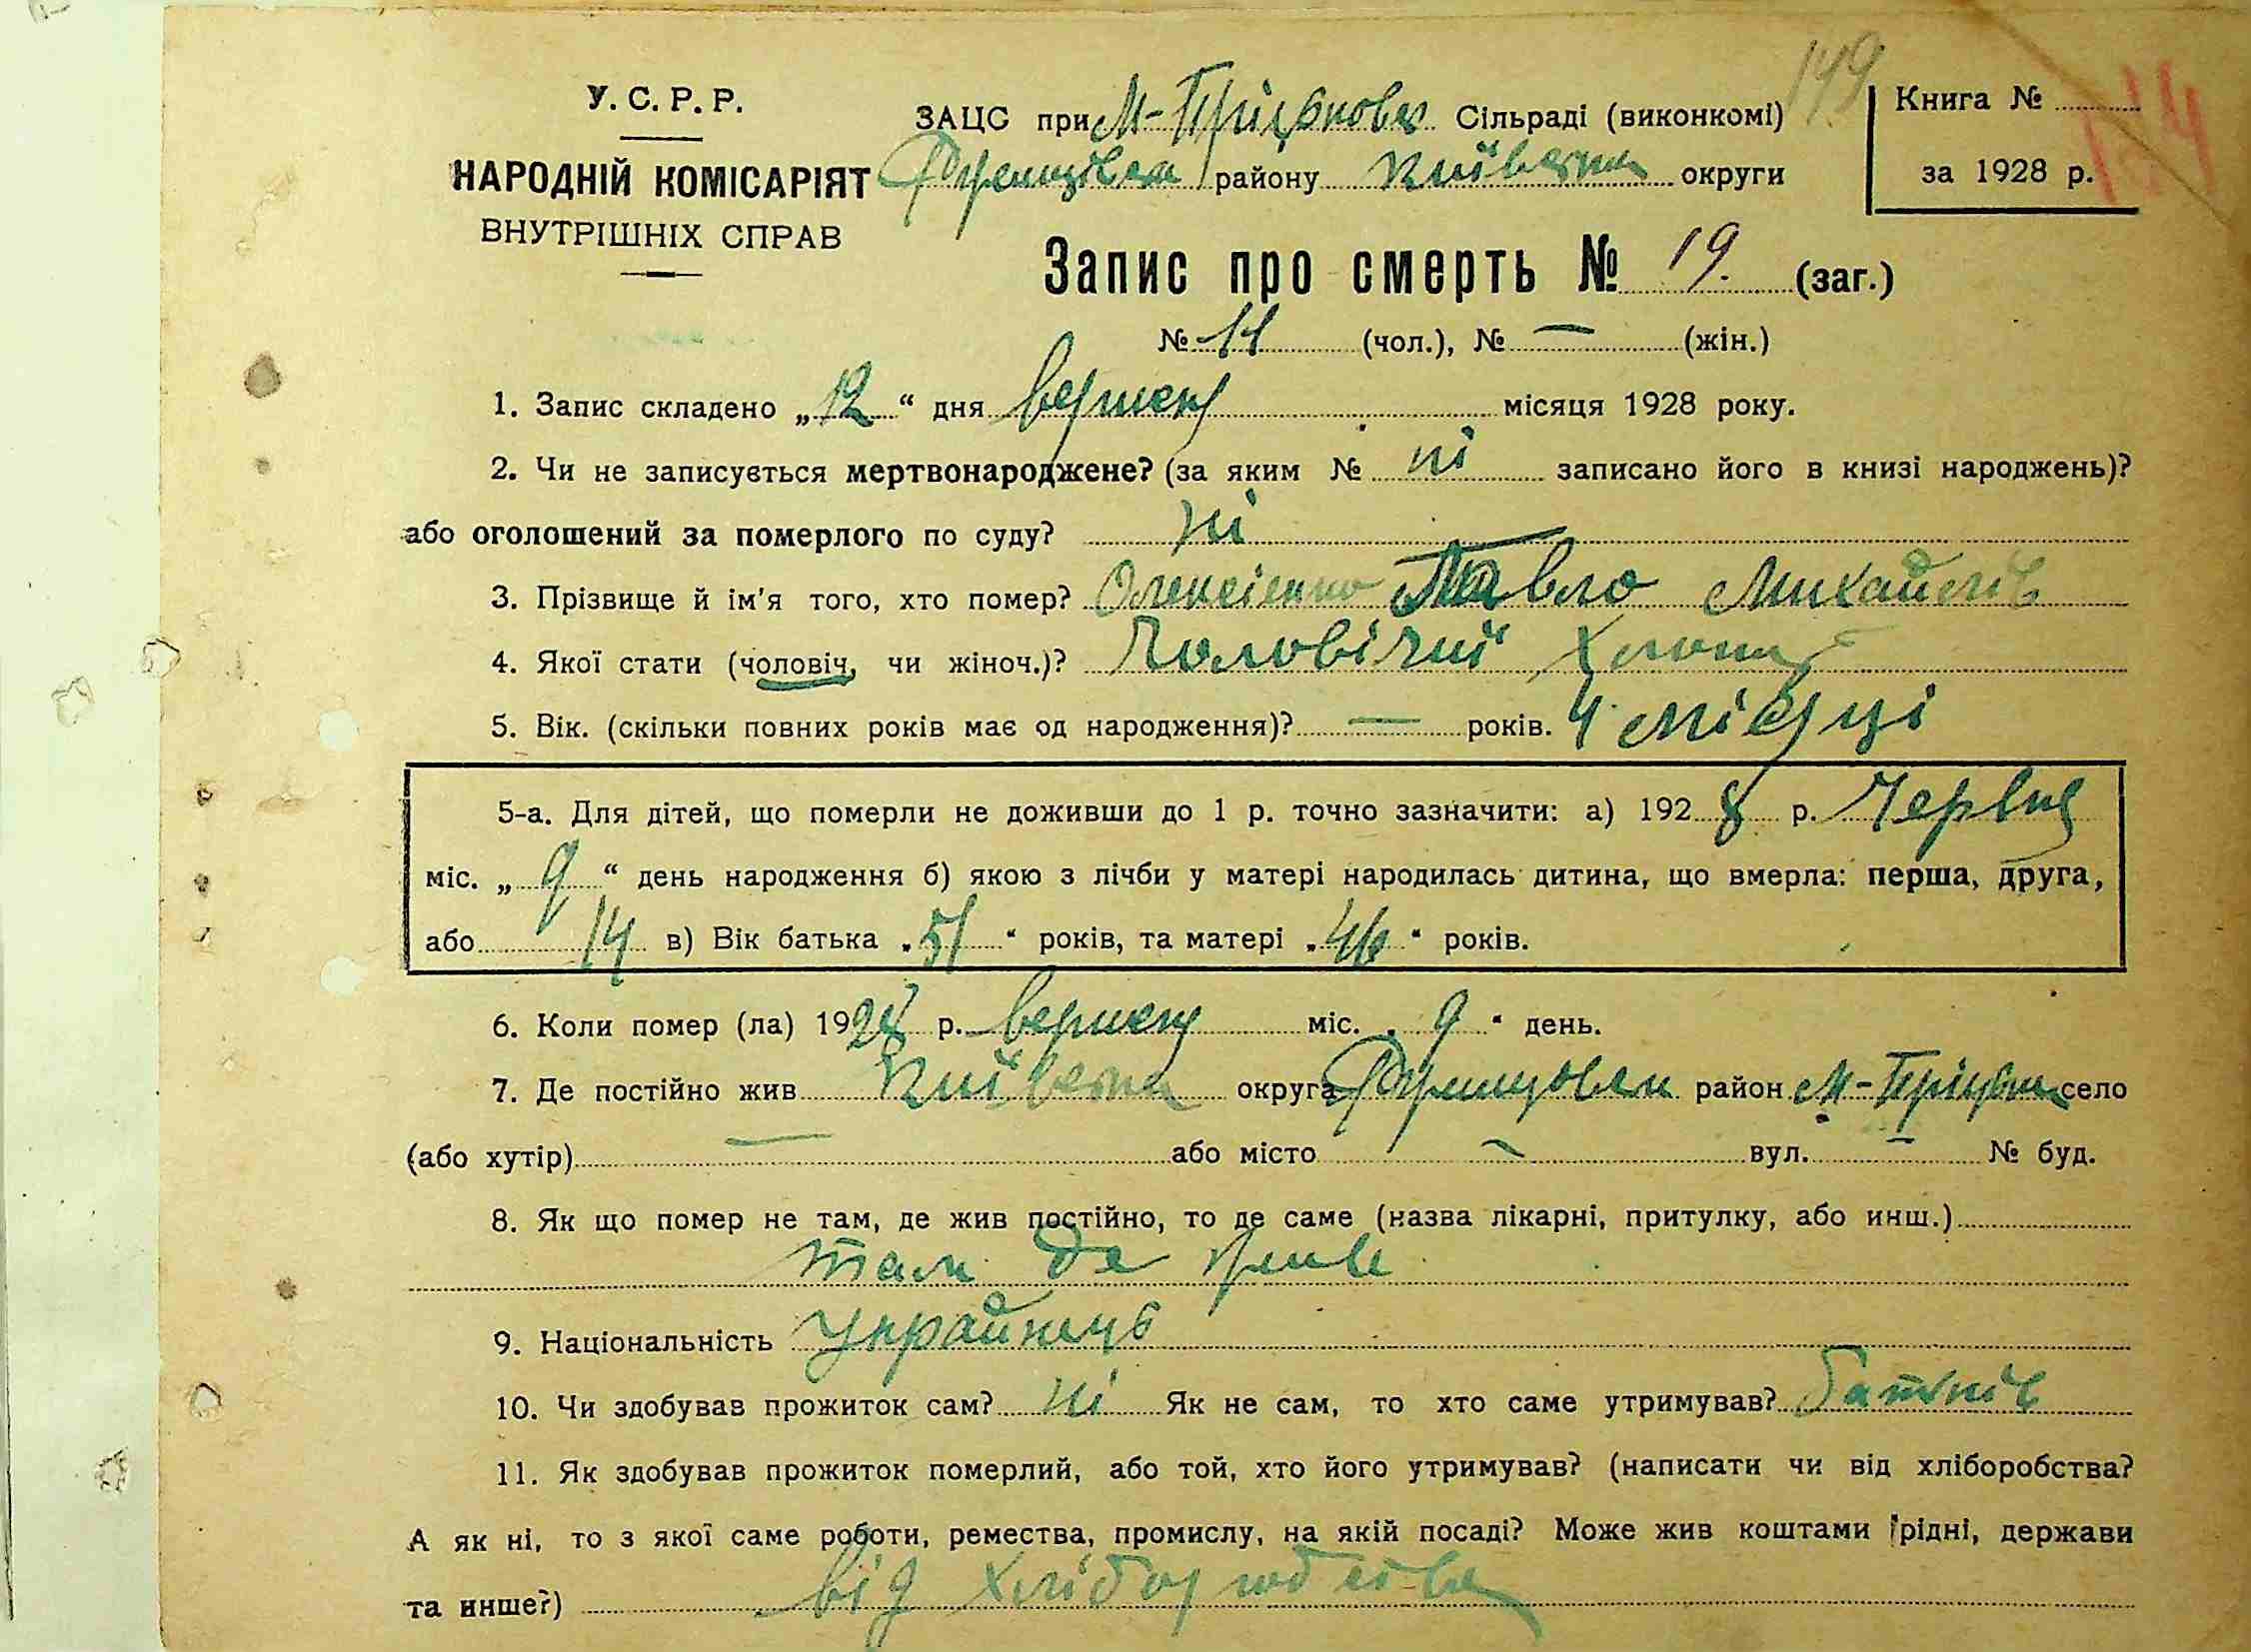 149
У. С. Р. Р.
ЗАЦС при М- Сільраді (виконкомі)
Книга №
НАРОДНІЙ КОМІСАРІЯТ
району Київська округи
за 1928 р.
ВНУТРІШНІХ СПРАВ
Запис про смерть № 19. (заг.)
№ 11 (чол.), № — (жін.)
1. Запис складено „12“ дня вересня місяця 1928 року.
2. Чи не записується мертвонароджене? (за яким № ні записано його в книзі народжень)?
або оголошений за померлого по суду? ні
3. Прізвище й ім'я того, хто помер? Олексієнко Павло Михайлів
4. Якої стати (чоловіч, чи жіноч.)? Чоловічий
5. Вік. (скільки повних років має од народження)? — років. 4 місяці
5-а. Для дітей, що померли не доживши до 1 р. точно зазначити: а) 1928 р. Червня
міс. „9“ день народження б) якою з лічби у матері народилась дитина, що вмерла: перша, друга,
або 14 в) Вік батька „51“ років, та матері „46“ років.
6. Коли помер (ла) 1928 р. вересня міс. „9“ день.
7. Де постійно жив Київська округа район М- село
(або хутір) — або місто — вул. — № буд.
8. Як що помер не там, де жив постійно, то де саме (назва лікарні, притулку, або инш.)
там де живе
9. Національність Українець
10. Чи здобував прожиток сам? ні Як не сам, то хто саме утримував? батьків
11. Як здобував прожиток померлий, або той, хто його утримував? (написати чи від хліборобства?
А як ні, то з якої саме роботи, ремества, промислу, на якій посаді? Може жив коштами рідні, держави
та инше?) від хліборобства